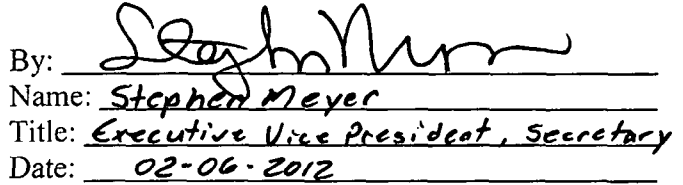 By: Stephen Meyer
Name: Stephen Meyer
Title: Executive Vice President, Secretary
Date: 02-06-2012